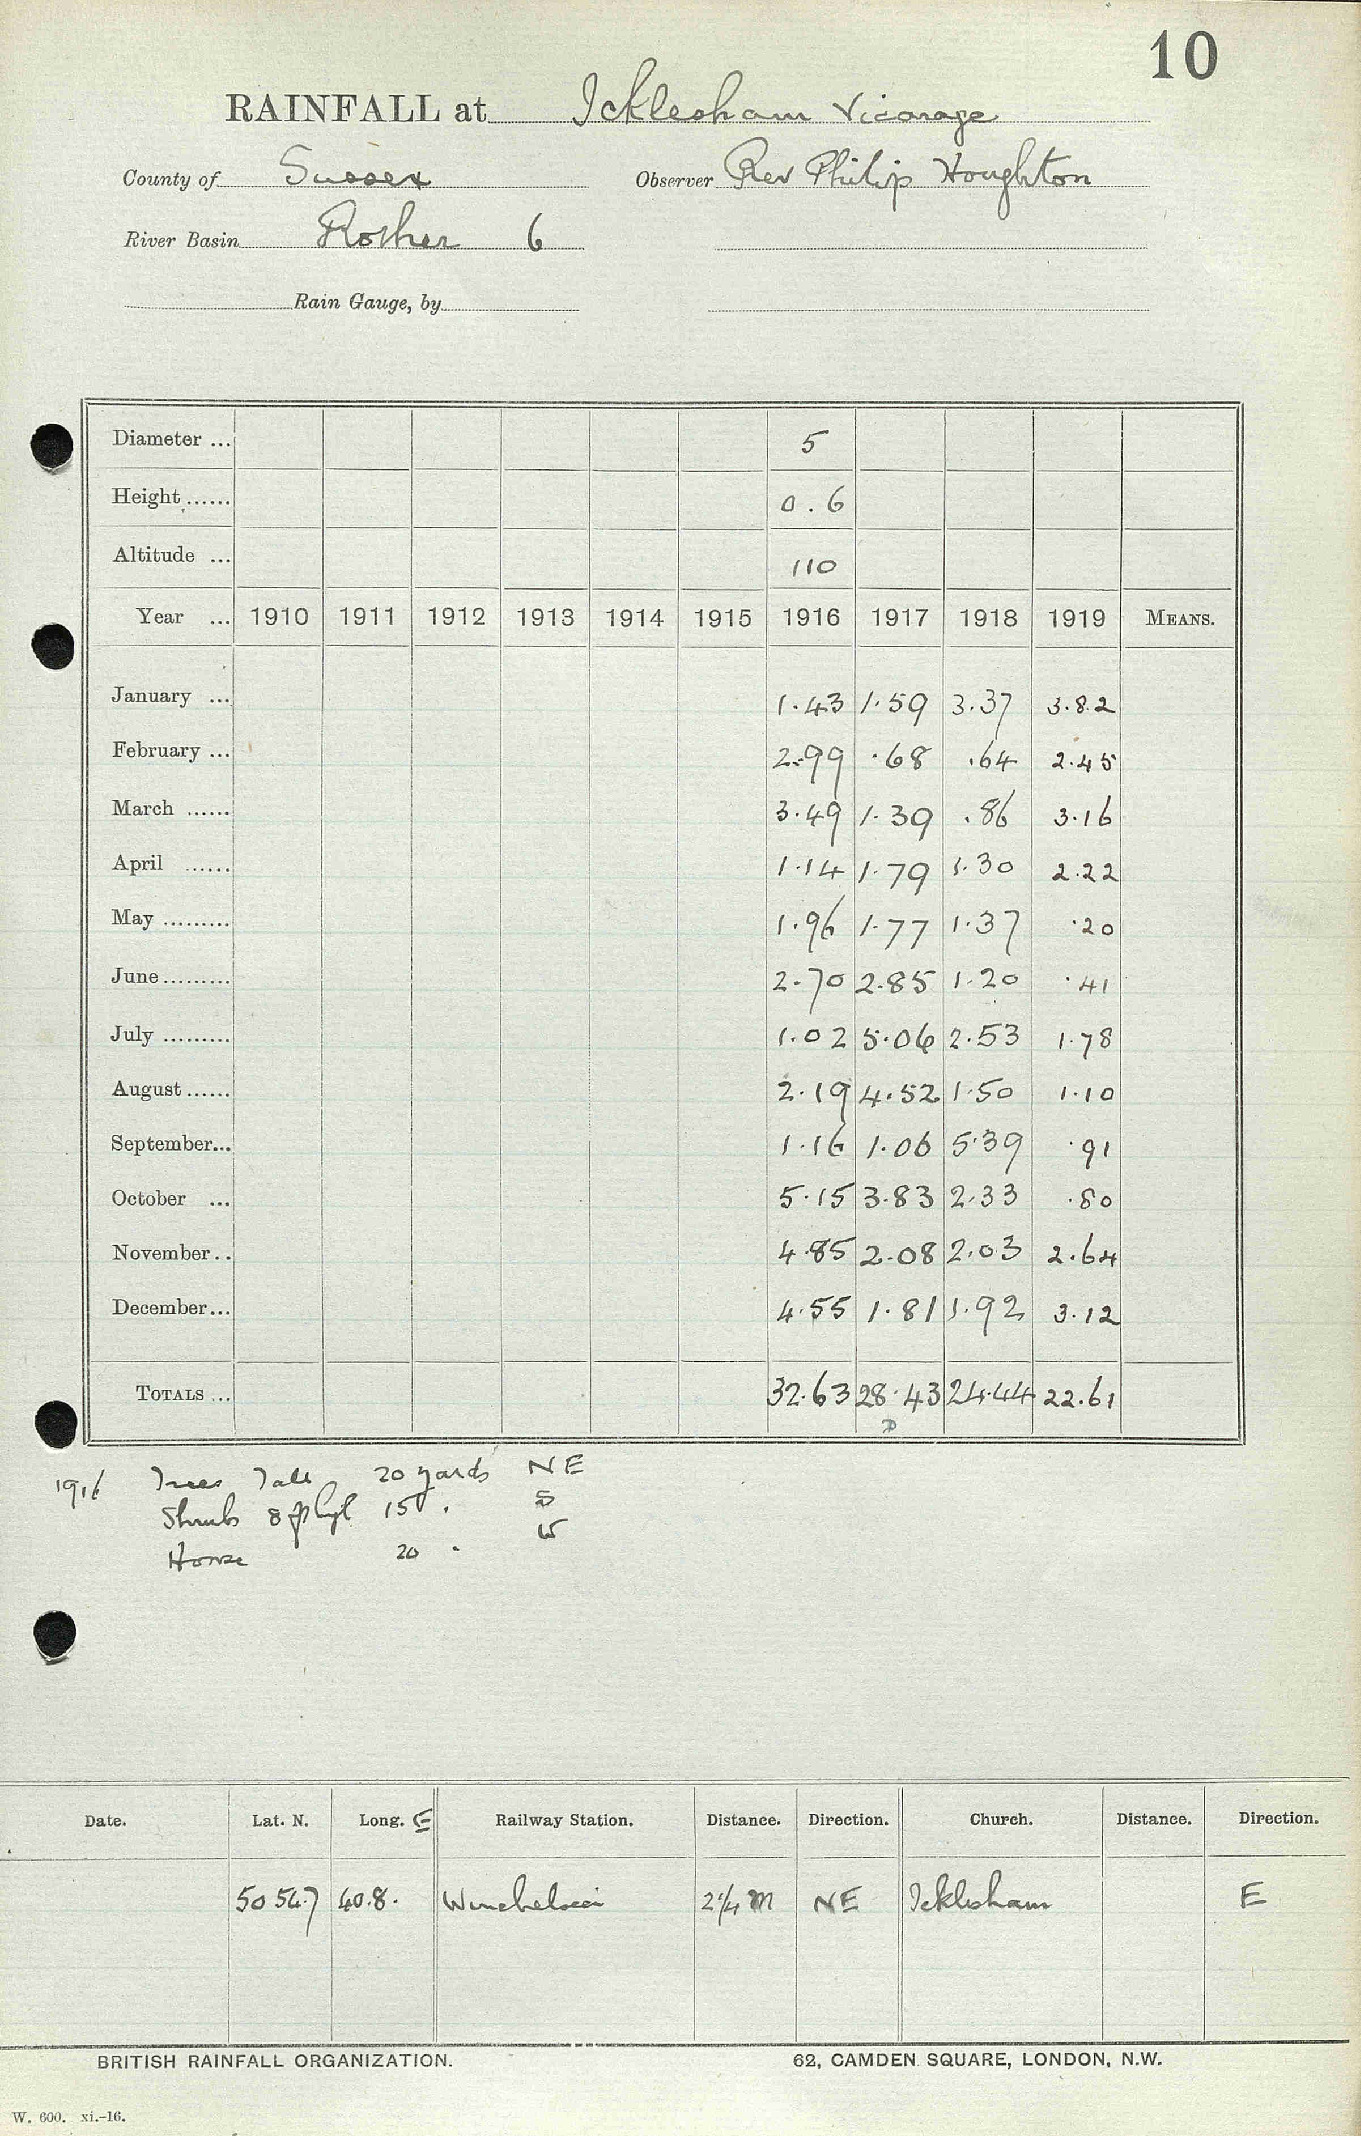 10
RAINFALL at Icklesham Vicarage
County of Sussex Observer Rev Philip Houghton
River Basin Rother 6
Rain Gauge, by
Diameter ... 5
Height ...... 0.6
Altitude ... 110
Year ... 1910 1911 1912 1913 1914 1915 1916 1917 1918 1919 MEANS.
January ... 1.43 1.59 3.37 3.82
February ... 2.99 .68 .64 2.45
March ...... 3.49 1.39 .86 3.16
April ...... 1.14 1.79 1.30 2.22
May ......... 1.96 1.77 1.37 .20
June ......... 2.70 2.85 1.20 .41
July ......... 1.02 5.06 2.53 1.78
August ...... 2.19 4.52 1.50 1.10
September... 1.16 1.06 5.39 .91
October ... 5.15 3.83 2.33 .80
November.. 4.85 2.08 2.03 2.64
December... 4.55 1.81 1.92 3.12
TOTALS ... 32.63 28.43 24.44 22.61
D
1916 Trees Tall 20 yards NE
Shrubs 8 ft hgt 15 " S
House 20 " W
Date. Lat. N. Long. E Railway Station. Distance. Direction. Church. Distance. Direction.
50 54.7 40.8. Winchelsea 2 1/4 M NE Icklesham E
BRITISH RAINFALL ORGANIZATION. 62, CAMDEN SQUARE, LONDON, N.W.
W. 600. xi.-16.